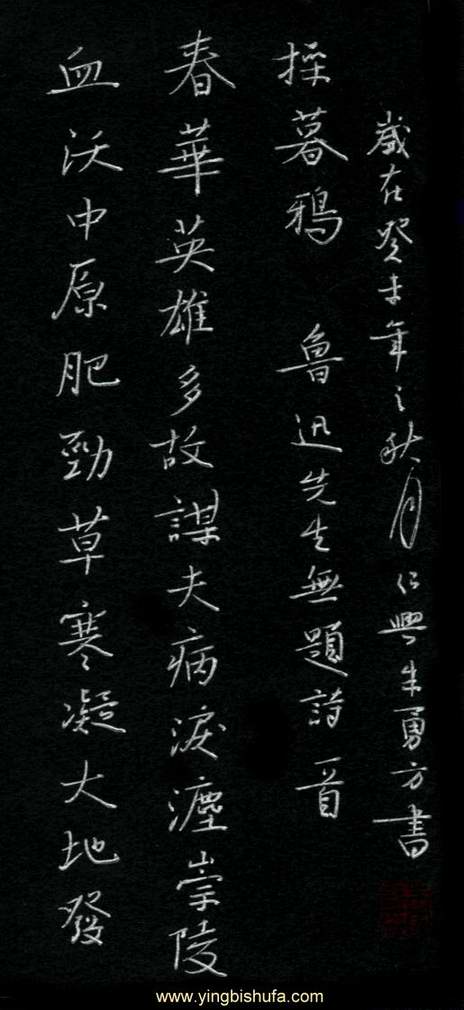 血沃中原肥勁草寒凝大地發
春華英雄多故謀夫病淚灑崇陵
暮鴉 魯迅先生無題詩一首
歲在癸未年之秋月仁興朱勇方書
www.yingbishufa.com